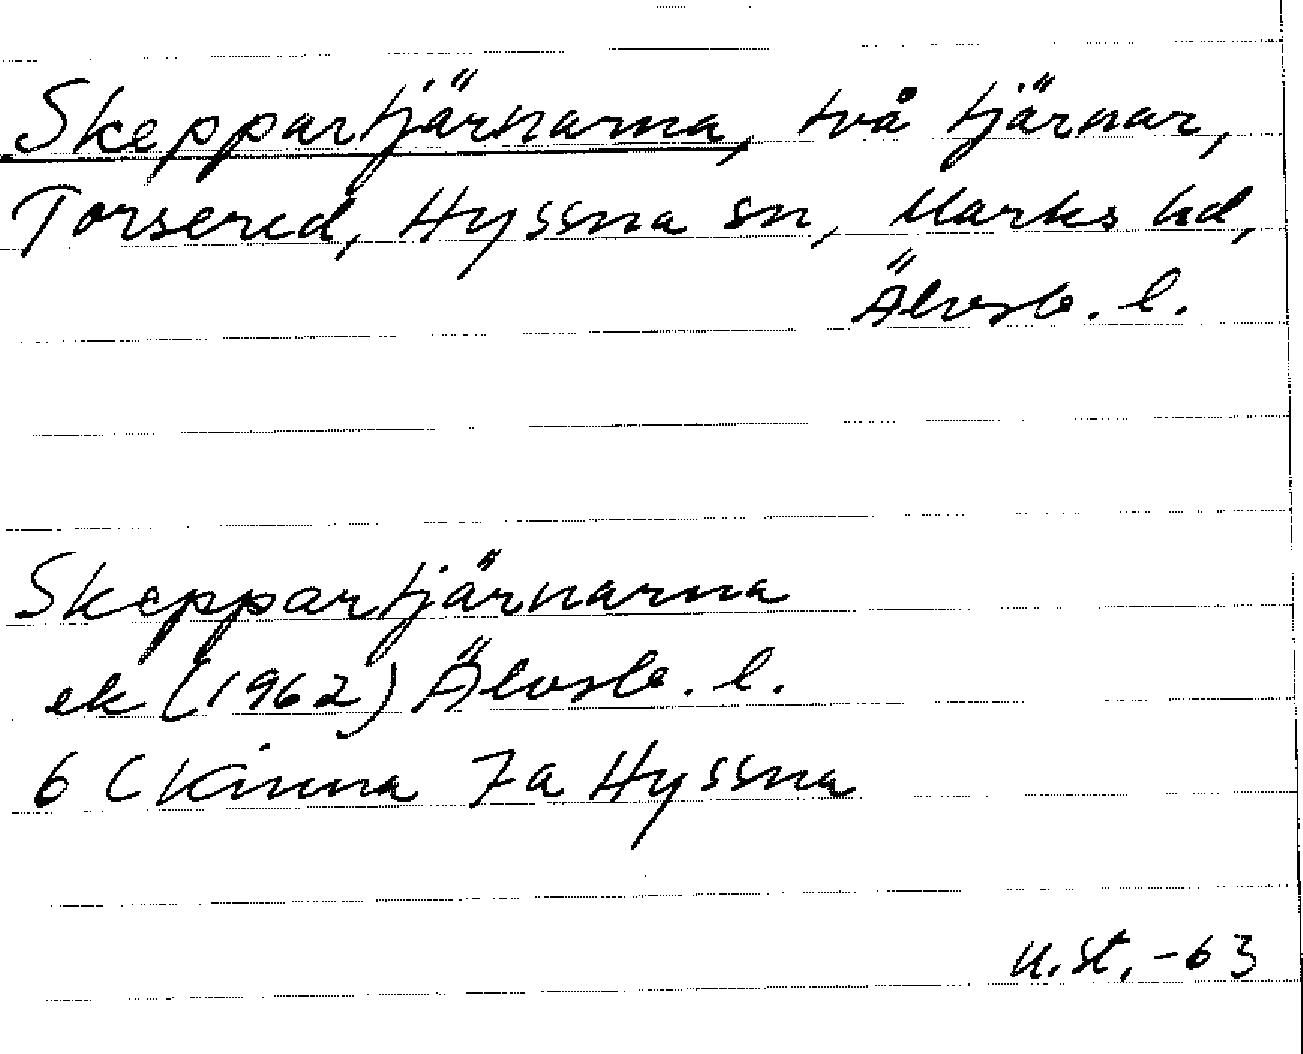 Skeppartjärnarna, två tjärnar,
Torsered, Hyssna sn, Marks hd,
Älvsb. l.
Skeppartjärnarna
ek (1962) Älvsb. l.
6 C Kinna 7a Hyssna
U.St. -63